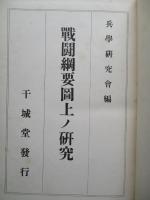 兵學研究會編
戰鬪綱要圖上ノ研究
干城堂發行